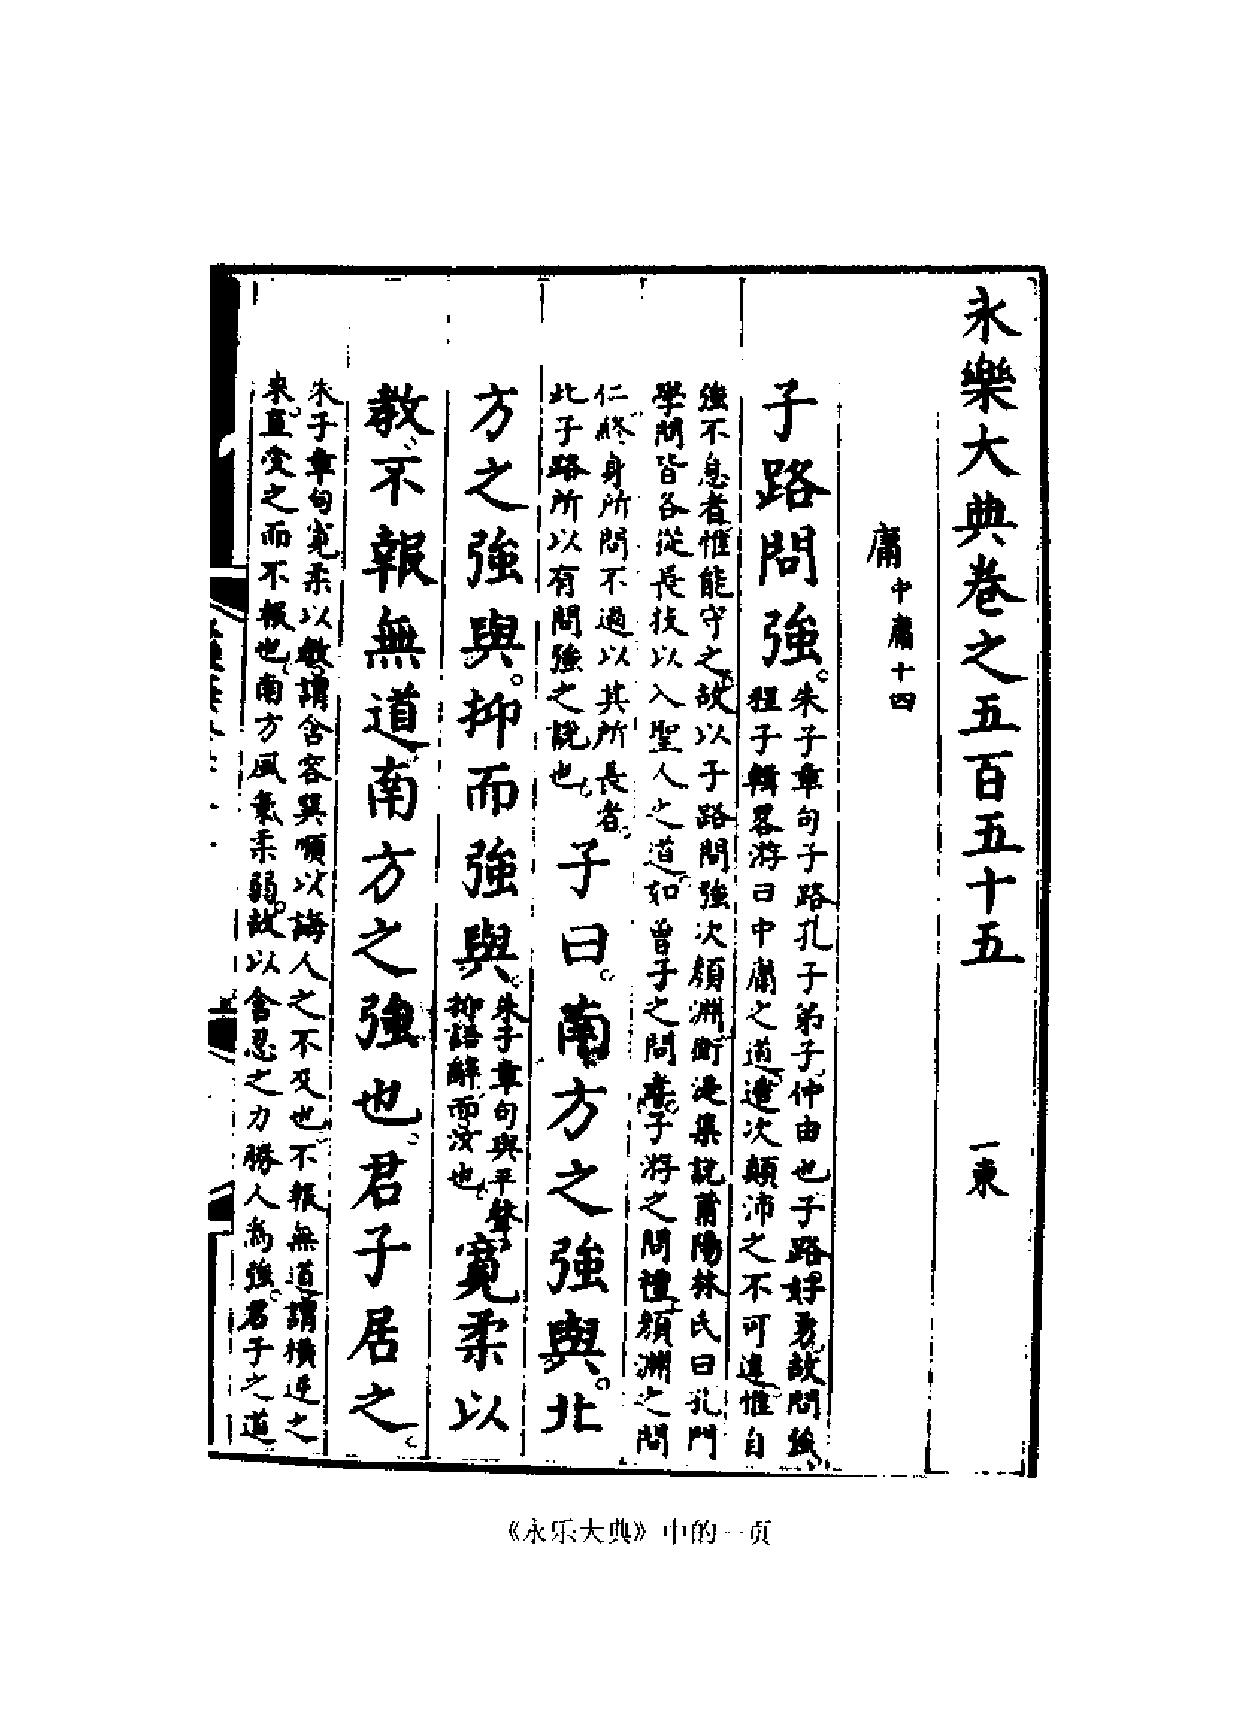 永樂大典卷之五百五十五 一東
庸 中庸十四
子路問強。朱子章句子路孔子弟子仲由也子路好勇故問強
程子輯畧游曰中庸之道造次顛沛之不可違惟自
強不息者惟能守之故以子路問強次顏淵衛湜集說莆陽林氏曰孔門
學問皆各從長技以入聖人之道如曾子之問孝子游之問禮顏淵之問
仁終身所問不過以其所長者
此子路所以有問強之說也
子曰。南方之強與。北
方之強與。抑而強與。朱子章句與平聲
抑語辭而汝也
寬柔以
教不報無道南方之強也。君子居之
朱子章句寬柔以教謂含容巽順以誨人之不及也不報無道謂橫逆之
來直受之而不報也南方風氣柔弱故以含忍之力勝人為強君子之道
《永乐大典》中的一页